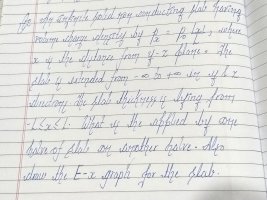 for an infinite solid non conducting slab having
volume charge density by ρ = ρ₀ |x|, where
x is the distance from y-z plane. The
slab is extended from -∞ to +∞ in y & z
direction the slab thickness is lying from
-L<x<L. What is the applied by one
halve of slab on another halve. Also
draw the E-x graph for the slab.